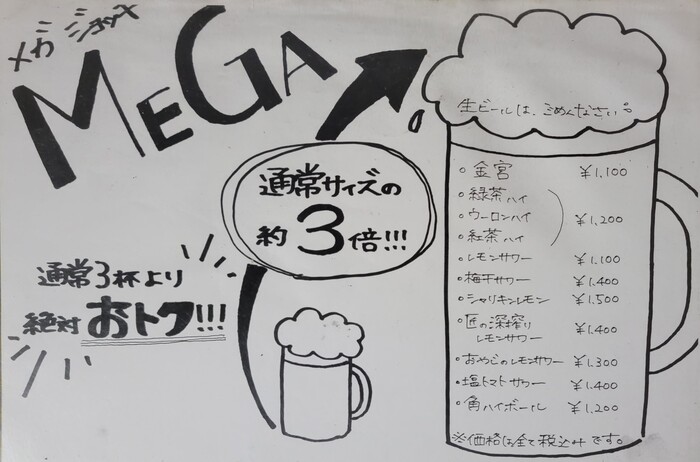 メガジョッキ
MEGA
通常サイズの
約3倍!!!
通常3杯より
絶対おトク!!!
生ビールは、ごめんなさい。
・金宮 ¥1,100
・緑茶ハイ
・ウーロンハイ ¥1,200
・紅茶ハイ
・レモンサワー ¥1,100
・梅干サワー ¥1,400
・シャリキンレモン ¥1,500
・匠の深搾り
レモンサワー ¥1,400
・おやじのレモンサワー ¥1,300
・塩トマトサワー ¥1,400
・角ハイボール ¥1,200
※価格は全て税込みです。